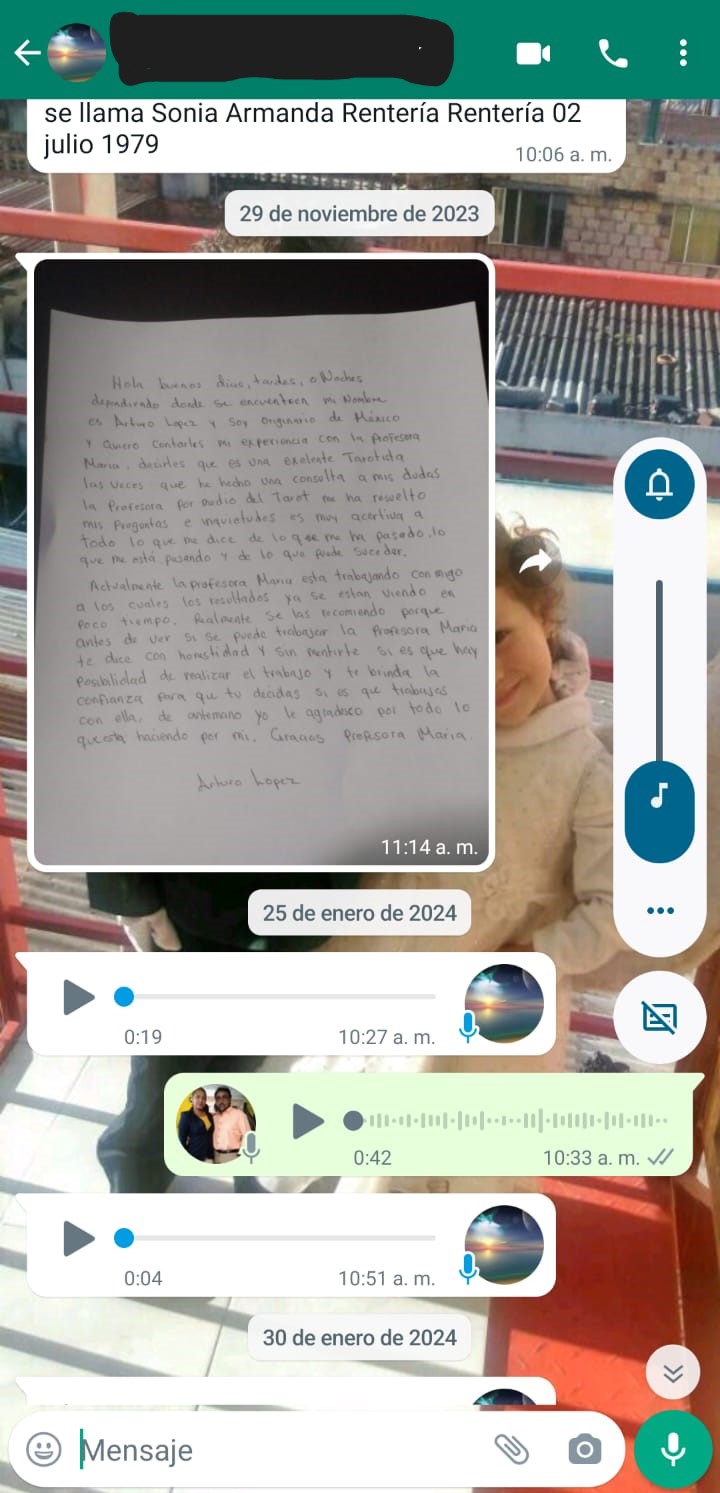 se llama Sonia Armanda Rentería Rentería 02
julio 1979
10:06 a. m.
29 de noviembre de 2023
Hola buenos dias, tardes, o Noches
dependiendo donde se encuentren mi Nombre
es Arturo Lopez y Soy Originario de México
y Quiero Contarles mi experiencia con la Profesora
Maria, decirles que es una exelente Tarotista
las veces que he hecho una consulta a mis dudas
la Profesora por medio del Tarot me ha resuelto
mis Preguntas e inquietudes es muy acertiva a
todo lo que me dice de lo que me ha pasado, lo
que me está pasando y de lo que puede suceder.
Actualmente la profesora Maria esta trabajando con migo
a los cuales los resultados ya se estan viendo en
Poco tiempo. Realmente se las recomiendo porque
antes de ver si se puede trabajar la Profesora Maria
te dice con honestidad y sin mentirte si es que hay
Posibilidad de realizar el trabajo y te brinda la
confianza para que tu decidas si es que trabajas
con ella, de antemano yo le agradesco por todo lo
que esta haciendo por mi. Gracias Profesora Maria.
Arturo Lopez
11:14 a. m.
25 de enero de 2024
0:19 10:27 a. m.
0:42 10:33 a. m.
0:04 10:51 a. m.
30 de enero de 2024
Mensaje